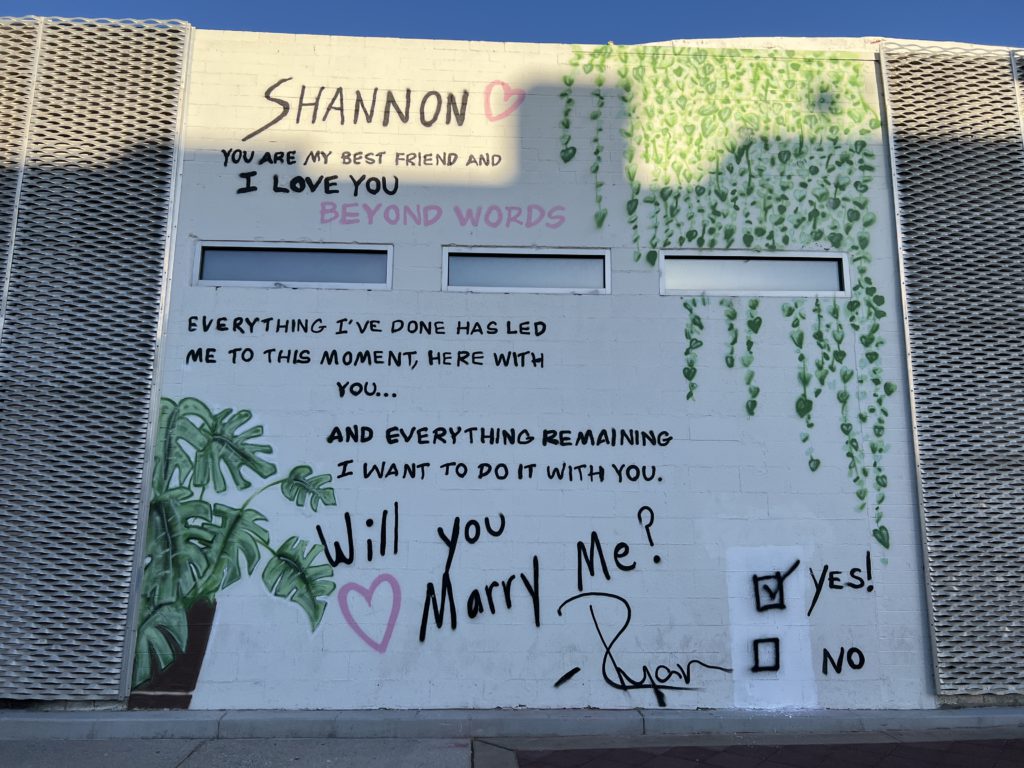 SHANNON
YOU ARE MY BEST FRIEND AND
I LOVE YOU
BEYOND WORDS
EVERYTHING I'VE DONE HAS LED
ME TO THIS MOMENT, HERE WITH
YOU...
AND EVERYTHING REMAINING
I WANT TO DO IT WITH YOU.
Will you
Marry Me?
- Ryan
YES!
NO